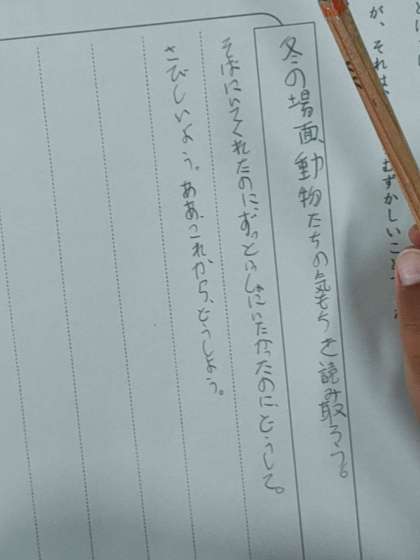 が、それは、むずかしいこと
冬の場面、動物たちの気もちを読み取ろう。
そばにいてくれたのに、ずっといっしょにいたかったのに、どうして。
さびしいよう。ああ、これから、どうしよう。